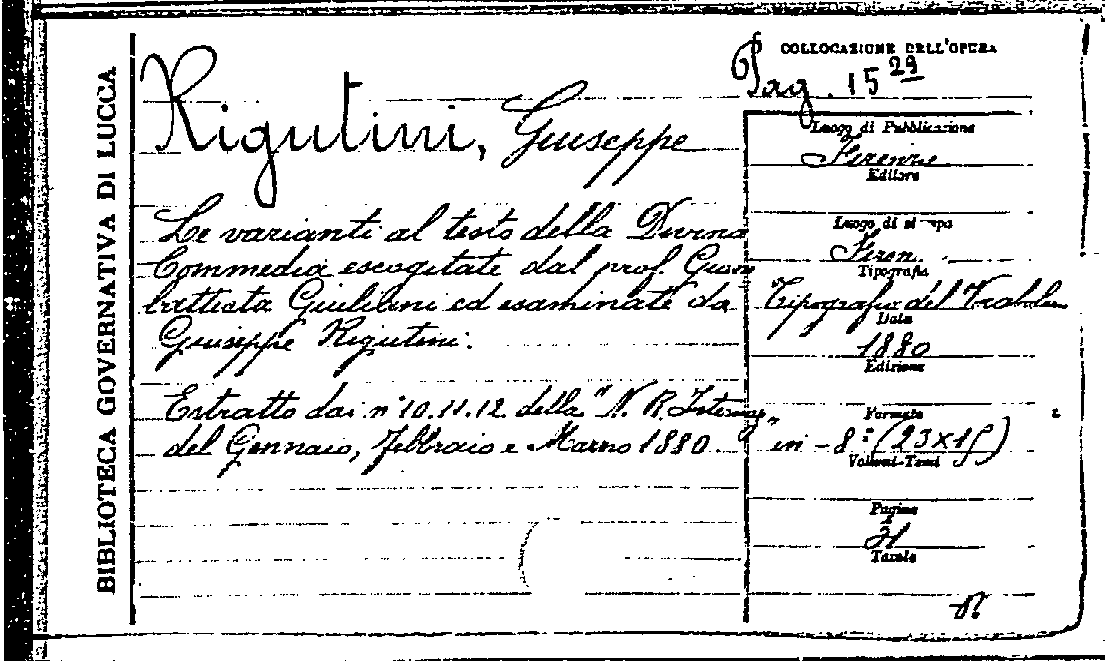 BIBLIOTECA GOVERNATIVA DI LUCCA
COLLOCAZIONE DELL'OPERA
Pag. 15 29
Rigutini, Giuseppe
Le varianti al testo della Divina
Commedia escogitate dal prof. Giam
battista Giuliani ed esaminate da
Giuseppe Rigutini.
Estratto dai n' 10.11.12 della "N. R. Internaz„
del Gennaio, Febbraio e Marzo 1880
Luogo di Pubblicazione
Firenze
Editore
Luogo di stampa
Firen.
Tipografia
Tipografia del Vocabolar
Data
1880
Edizione
Formato
in-8º (23x15)
Volumi-Tomi
Pagine
31
Tavole